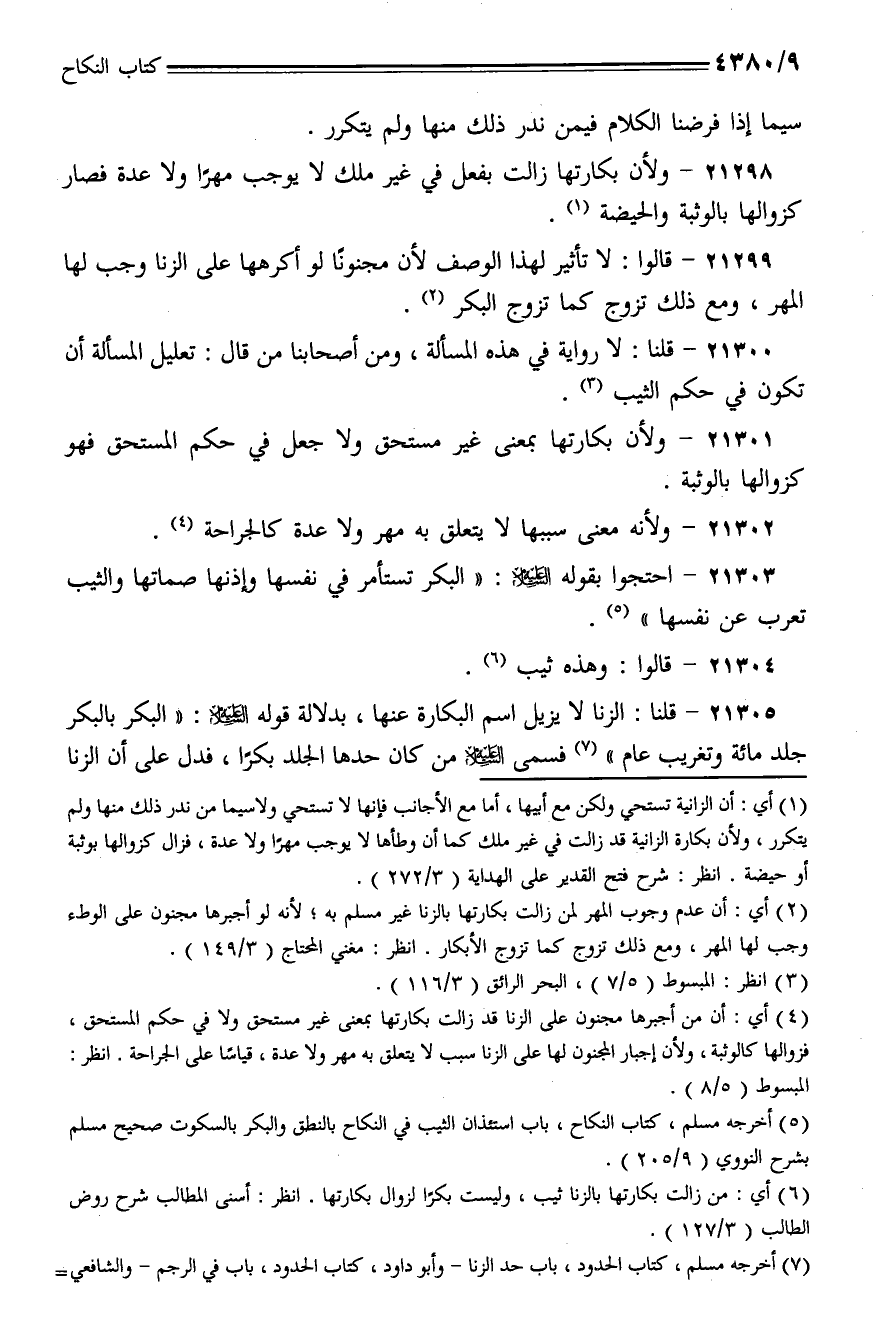 ٤٣٨٠/٩ كتاب النكاح
سيما إذا فرضنا الكلام فيمن ندر ذلك منها ولم يتكرر .
٢١٢٩٨ - ولأن بكارتها زالت بفعل في غير ملك لا يوجب مهرًا ولا عدة فصار
كزوالها بالوثبة والحيضة (١) .
٢١٢٩٩ - قالوا : لا تأثير لهذا الوصف لأن مجنونًا لو أكرهها على الزنا وجب لها
المهر ، ومع ذلك تزوج كما تزوج البكر (٢) .
٢١٣٠٠ - قلنا : لا رواية في هذه المسألة ، ومن أصحابنا من قال : تعليل المسألة أن
تكون في حكم الثيب (٣) .
٢١٣٠١ - ولأن بكارتها بمعنى غير مستحق ولا جعل في حكم المستحق فهو
كزوالها بالوثبة .
٢١٣٠٢ - ولأنه معنى سببها لا يتعلق به مهر ولا عدة كالجراحة (٤) .
٢١٣٠٣ - احتجوا بقوله عليه السلام : « البكر تستأمر في نفسها وإذنها صماتها والثيب
تعرب عن نفسها » (٥) .
٢١٣٠٤ - قالوا : وهذه ثيب (٦) .
٢١٣٠٥ - قلنا : الزنا لا يزيل اسم البكارة عنها ، بدلالة قوله عليه السلام : « البكر بالبكر
جلد مائة وتغريب عام » (٧) فسمى عليه السلام من كان حدها الجلد بكرًا ، فدل على أن الزنا
(١) أي : أن الزانية تستحي ولكن مع أبيها ، أما مع الأجانب فإنها لا تستحي ولاسيما من ندر ذلك منها ولم
يتكرر ، ولأن بكارة الزانية قد زالت في غير ملك كما أن وطأها لا يوجب مهرًا ولا عدة ، فزال كزوالها بوثبة
أو حيضة . انظر : شرح فتح القدير على الهداية ( ٢٧٢/٣ ) .
(٢) أي : أن عدم وجوب المهر لمن زالت بكارتها بالزنا غير مسلم به ؛ لأنه لو أجبرها مجنون على الوطء
وجب لها المهر ، ومع ذلك تزوج كما تزوج الأبكار . انظر : مغني المحتاج ( ١٤٩/٣ ) .
(٣) انظر : المبسوط ( ٧/٥ ) ، البحر الرائق ( ١١٦/٣ ) .
(٤) أي : أن من أجبرها مجنون على الزنا قد زالت بكارتها بمعنى غير مستحق ولا في حكم المستحق ،
فزوالها كالوثبة ، ولأن إجبار المجنون لها على الزنا سبب لا يتعلق به مهر ولا عدة ، قياسًا على الجراحة . انظر :
المبسوط ( ٨/٥ ) .
(٥) أخرجه مسلم ، كتاب النكاح ، باب استئذان الثيب في النكاح بالنطق والبكر بالسكوت صحيح مسلم
بشرح النووي ( ٢٠٥/٩ ) .
(٦) أي : من زالت بكارتها بالزنا ثيب ، وليست بكرًا لزوال بكارتها . انظر : أسنى المطالب شرح روض
الطالب ( ١٢٧/٣ ) .
(٧) أخرجه مسلم ، كتاب الحدود ، باب حد الزنا - وأبو داود ، كتاب الحدود ، باب في الرجم - والشافعي =